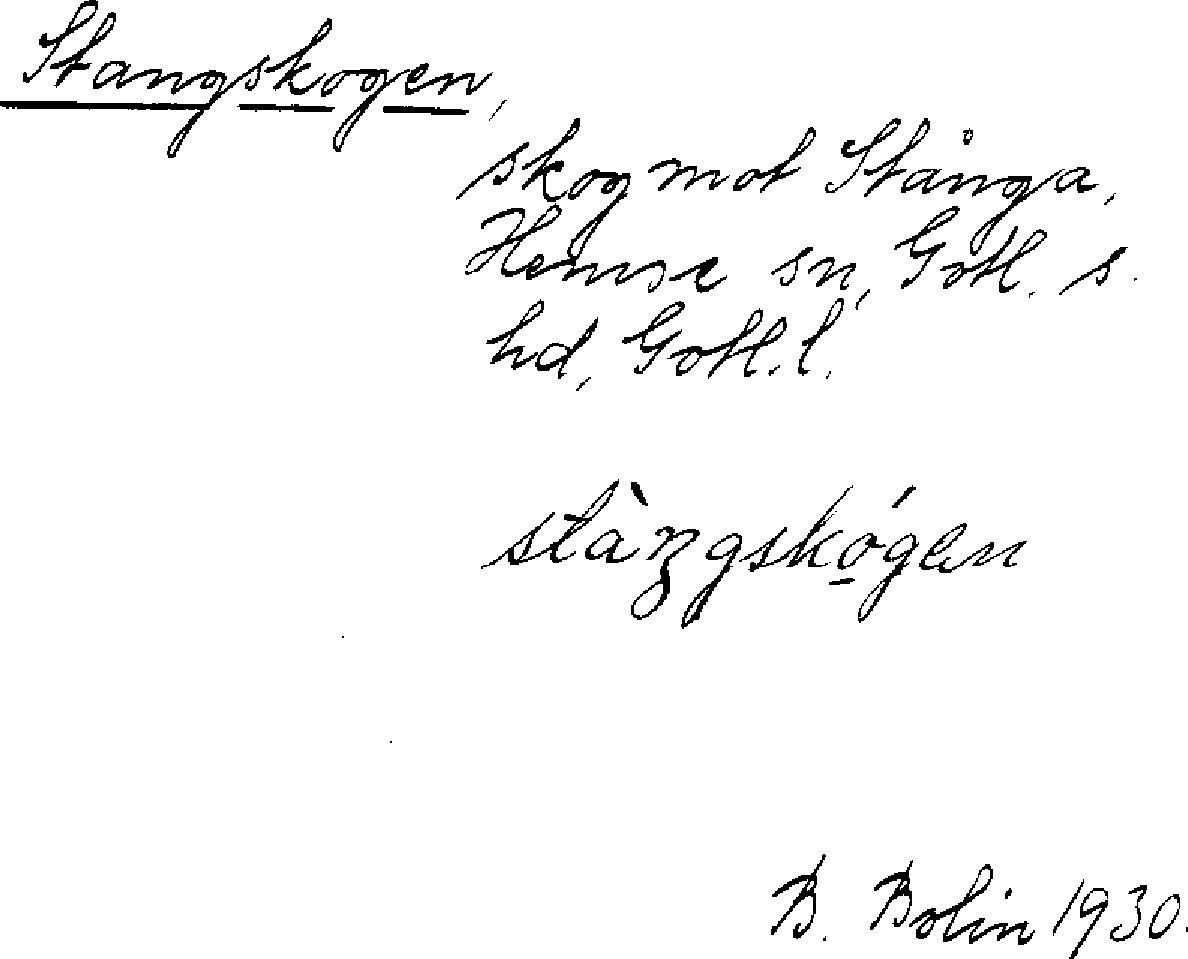 Stangskogen,
skog mot Stånga,
Hemse sn, Gotl. s.
hd, Gotl. l.
stàŋgskó̠gen
B. Bolin 1930.